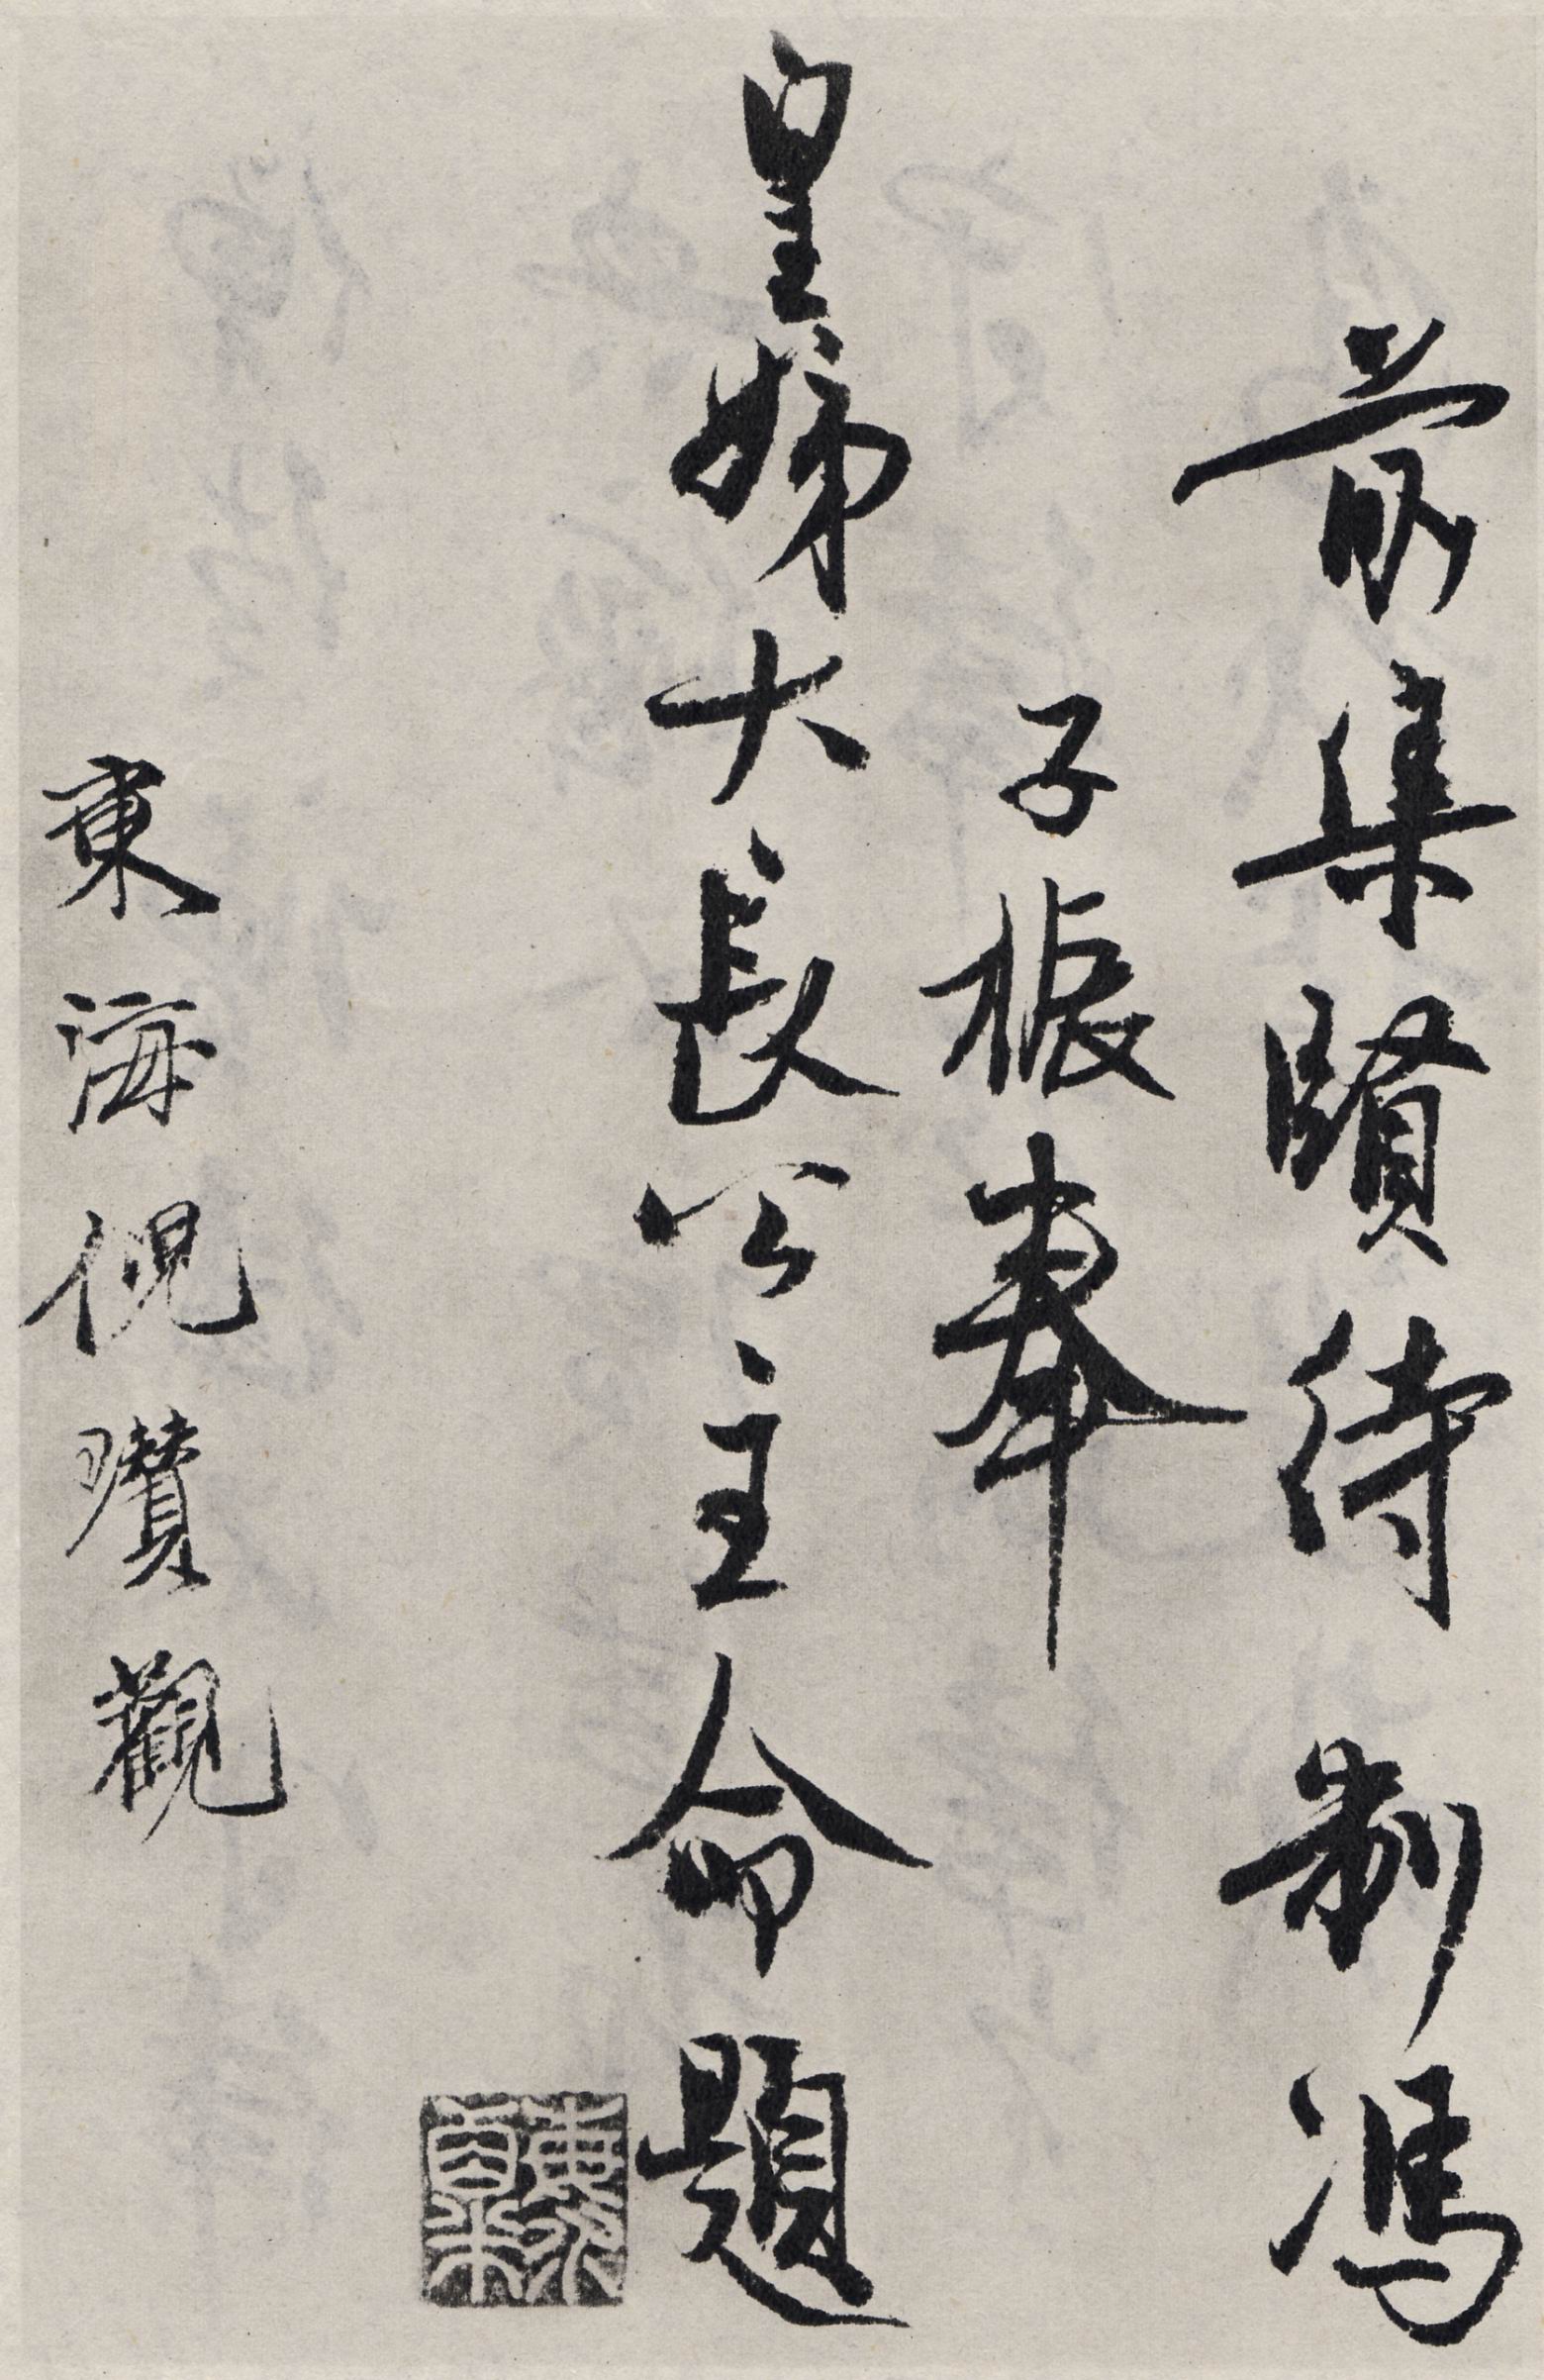 前集賢待制馮
子振奉
皇姊大長公主命題
東海倪瓚觀